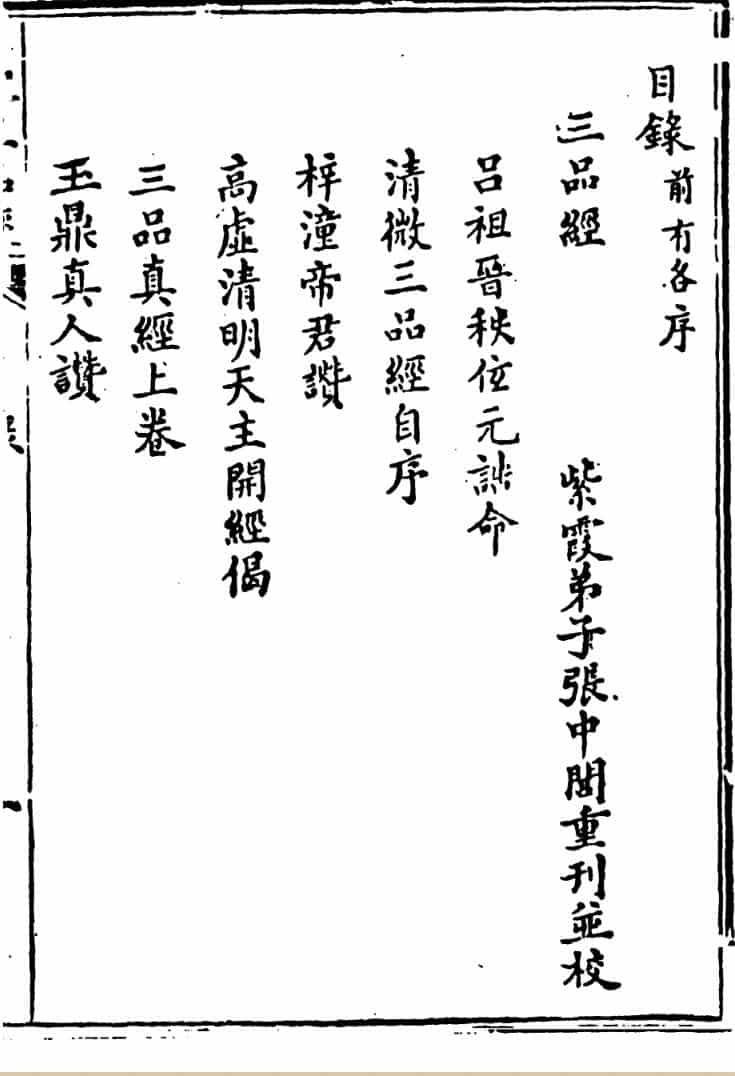 目錄 前有各序
三品經 紫霞弟子張中閶重刊並校
呂祖晉秩位元誥命
清微三品經自序
梓潼帝君讚
高虛清明天主開經偈
三品真經上卷
玉鼎真人讚